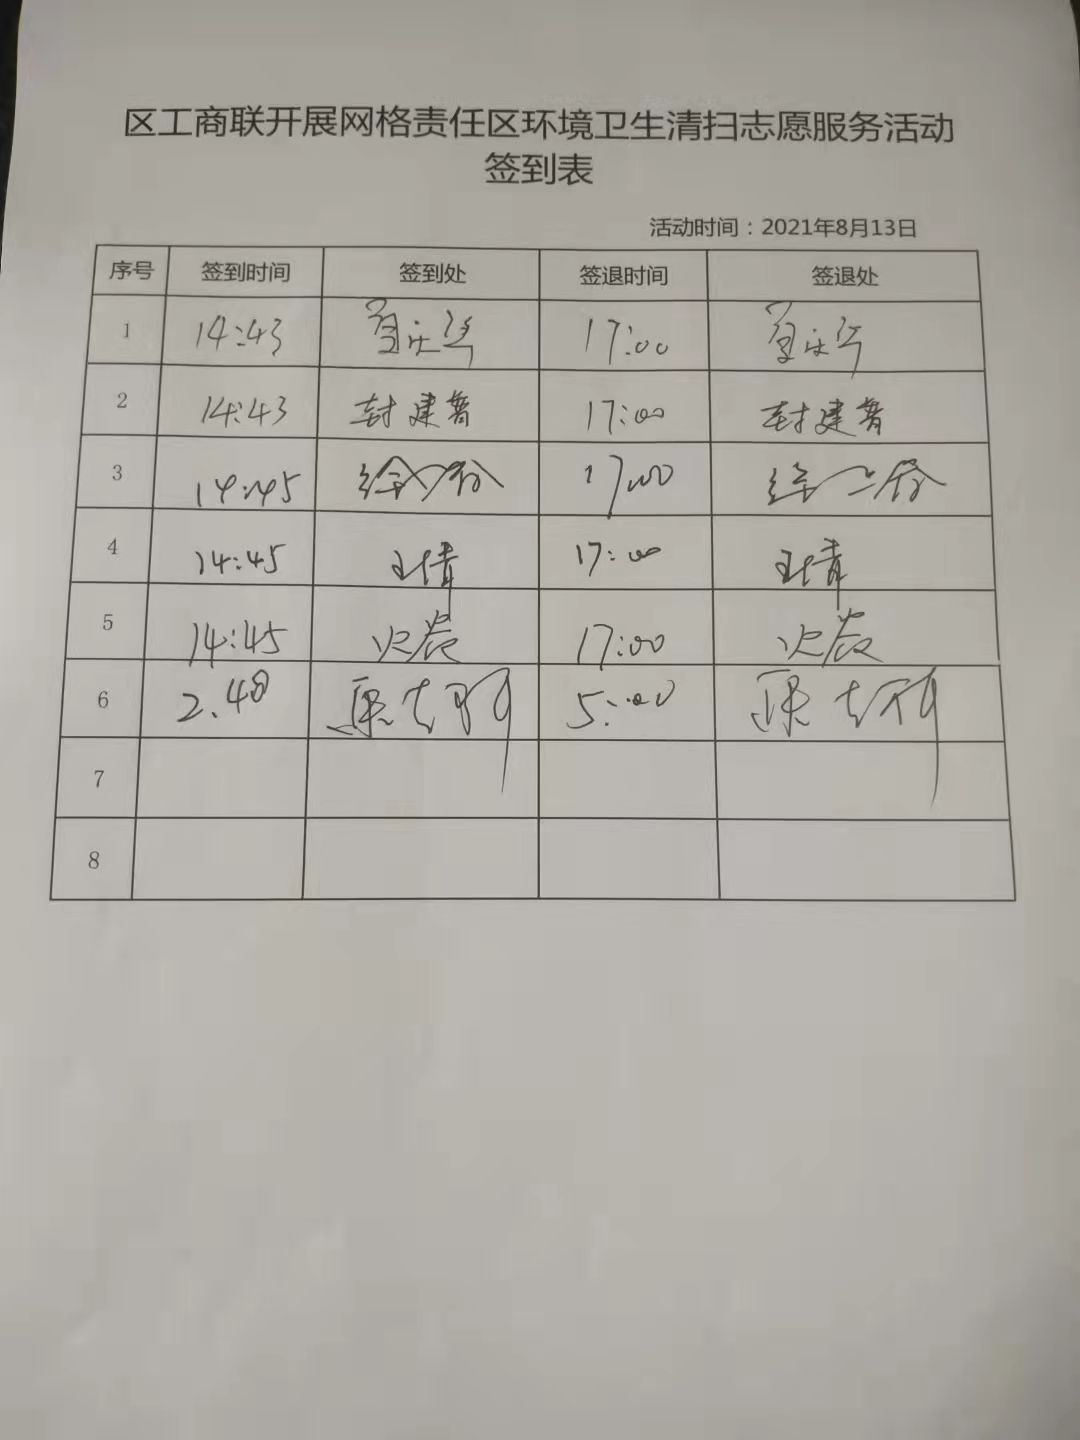 区工商联开展网格责任区环境卫生清扫志愿服务活动
签到表
活动时间：2021年8月13日
序号 签到时间 签到处 签退时间 签退处
1 14:43 17:00
2 14:43 封建普 17:00 封建普
3 14:45 17:00
4 14:45 王倩 17:00 王倩
5 14:45 17:00
6 2.48 5:00
7
8